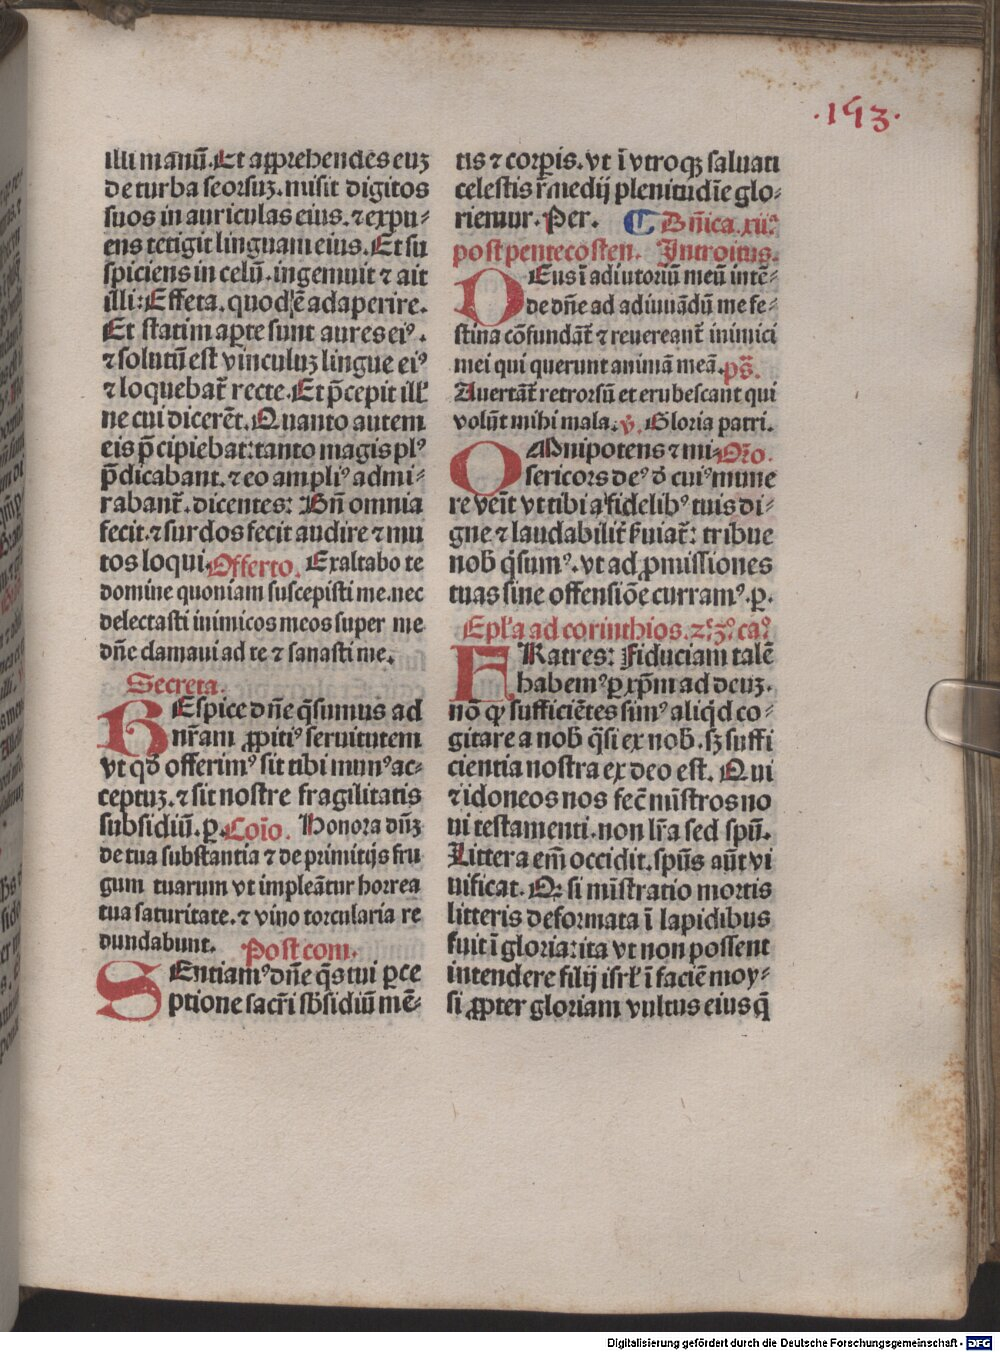 .193.
illi manū. Et apprehendēs euꝫ
de turba seorsuꝫ. misit digitos
suos in auriculas eius. ⁊ expu⸗
ens tetigit linguam eius. Et su
spiciens in celū. ingemuit ⁊ ait
illi: Effeta. quod ē adaperire.
Et statim apte sunt aures eiꝰ.
⁊ solutū est vinculuꝫ lingue eiꝰ
⁊ loquebat̄ recte. Et p̄cepit ill'
ne cui dicerēt. Quanto autem
eis p̄cipiebat: tanto magis plꝰ
p̄dicabant. ⁊ eo ampliꝰ admi⸗
rabant̄. dicentes: Bn̄ omnia
fecit. ⁊ surdos fecit audire ⁊ mu
tos loqui. Offerto. Exaltabo te
domine quoniam suscepisti me. nec
delectasti inimicos meos super me
dn̄e clamaui ad te ⁊ sanasti me.
Secreta.
REspice dn̄e q̄sumus ad
nr̄am ꝓpitiꝰ seruitutem
vt qd̄ offerimꝰ sit tibi munꝰ ac⸗
ceptuꝫ. ⁊ sit nostre fragilitatis
subsidiū. ꝑ. Coīo. Honora dn̄ꝫ
de tua substantia ⁊ de primitijs fru
gum tuarum vt impleātur horrea
tua saturitate. ⁊ vino torcularia re
dundabunt. Postcom.
SEntiamꝰ dn̄e q̄s tui ꝑce
ptione sacr̄i sb̄sidiū mē⸗
tis ⁊ corꝑis. vt ī vtroqꝫ saluati
celestis r̄medij plenitudīe glo⸗
riemur. Per. ¶ Dn̄ica. xii.
post pentecosten. Introitus.
DEus ī adiutoriū meū intē⸗
de dn̄e ad adiuuādū me fe⸗
stina cōfundāt̄ ⁊ reuereant̄ inimici
mei qui querunt animā meā. ps̄.
Auertāt̄ retrorsū et erubescant qui
volūt mihi mala. v̄. Gloria patri.
OMnipotens ⁊ mi⸗ Oro.
sericors deꝰ d̄ cuiꝰ mune
re veīt vt tibi a fidelibꝰ tuis di⸗
gne ⁊ laudabilit̄ s̄uiat̄: tribue
nob̄ q̄sumꝰ. vt ad ꝓmissiones
tuas sine offensiōe curramꝰ. ꝑ.
Epl'a ad corinthios. 2ᵉ. 3ᵒ. caᵒ.
FRatres: Fiduciam talē
habemꝰ ꝑ xp̄m ad deuꝫ.
nō qꝫ sufficiētes simꝰ aliqͥd co⸗
gitare a nob̄ q̄si ex nob̄. sꝫ suffi
cientia nostra ex deo est. Qui
⁊ idoneos nos fec̄ mīstros no
ui testamenti. non lr̄a sed spū.
Littera em̄ occidit. spūs aūt vi
uificat. Qꝫ si mīstratio mortis
litteris deformata ī lapidibus
fuit ī gloria: ita vt non possent
intendere filij isrl' ī faciē moy⸗
si ꝓpter gloriam vultus eius q̄
Digitalisierung gefördert durch die Deutsche Forschungsgemeinschaft - DFG